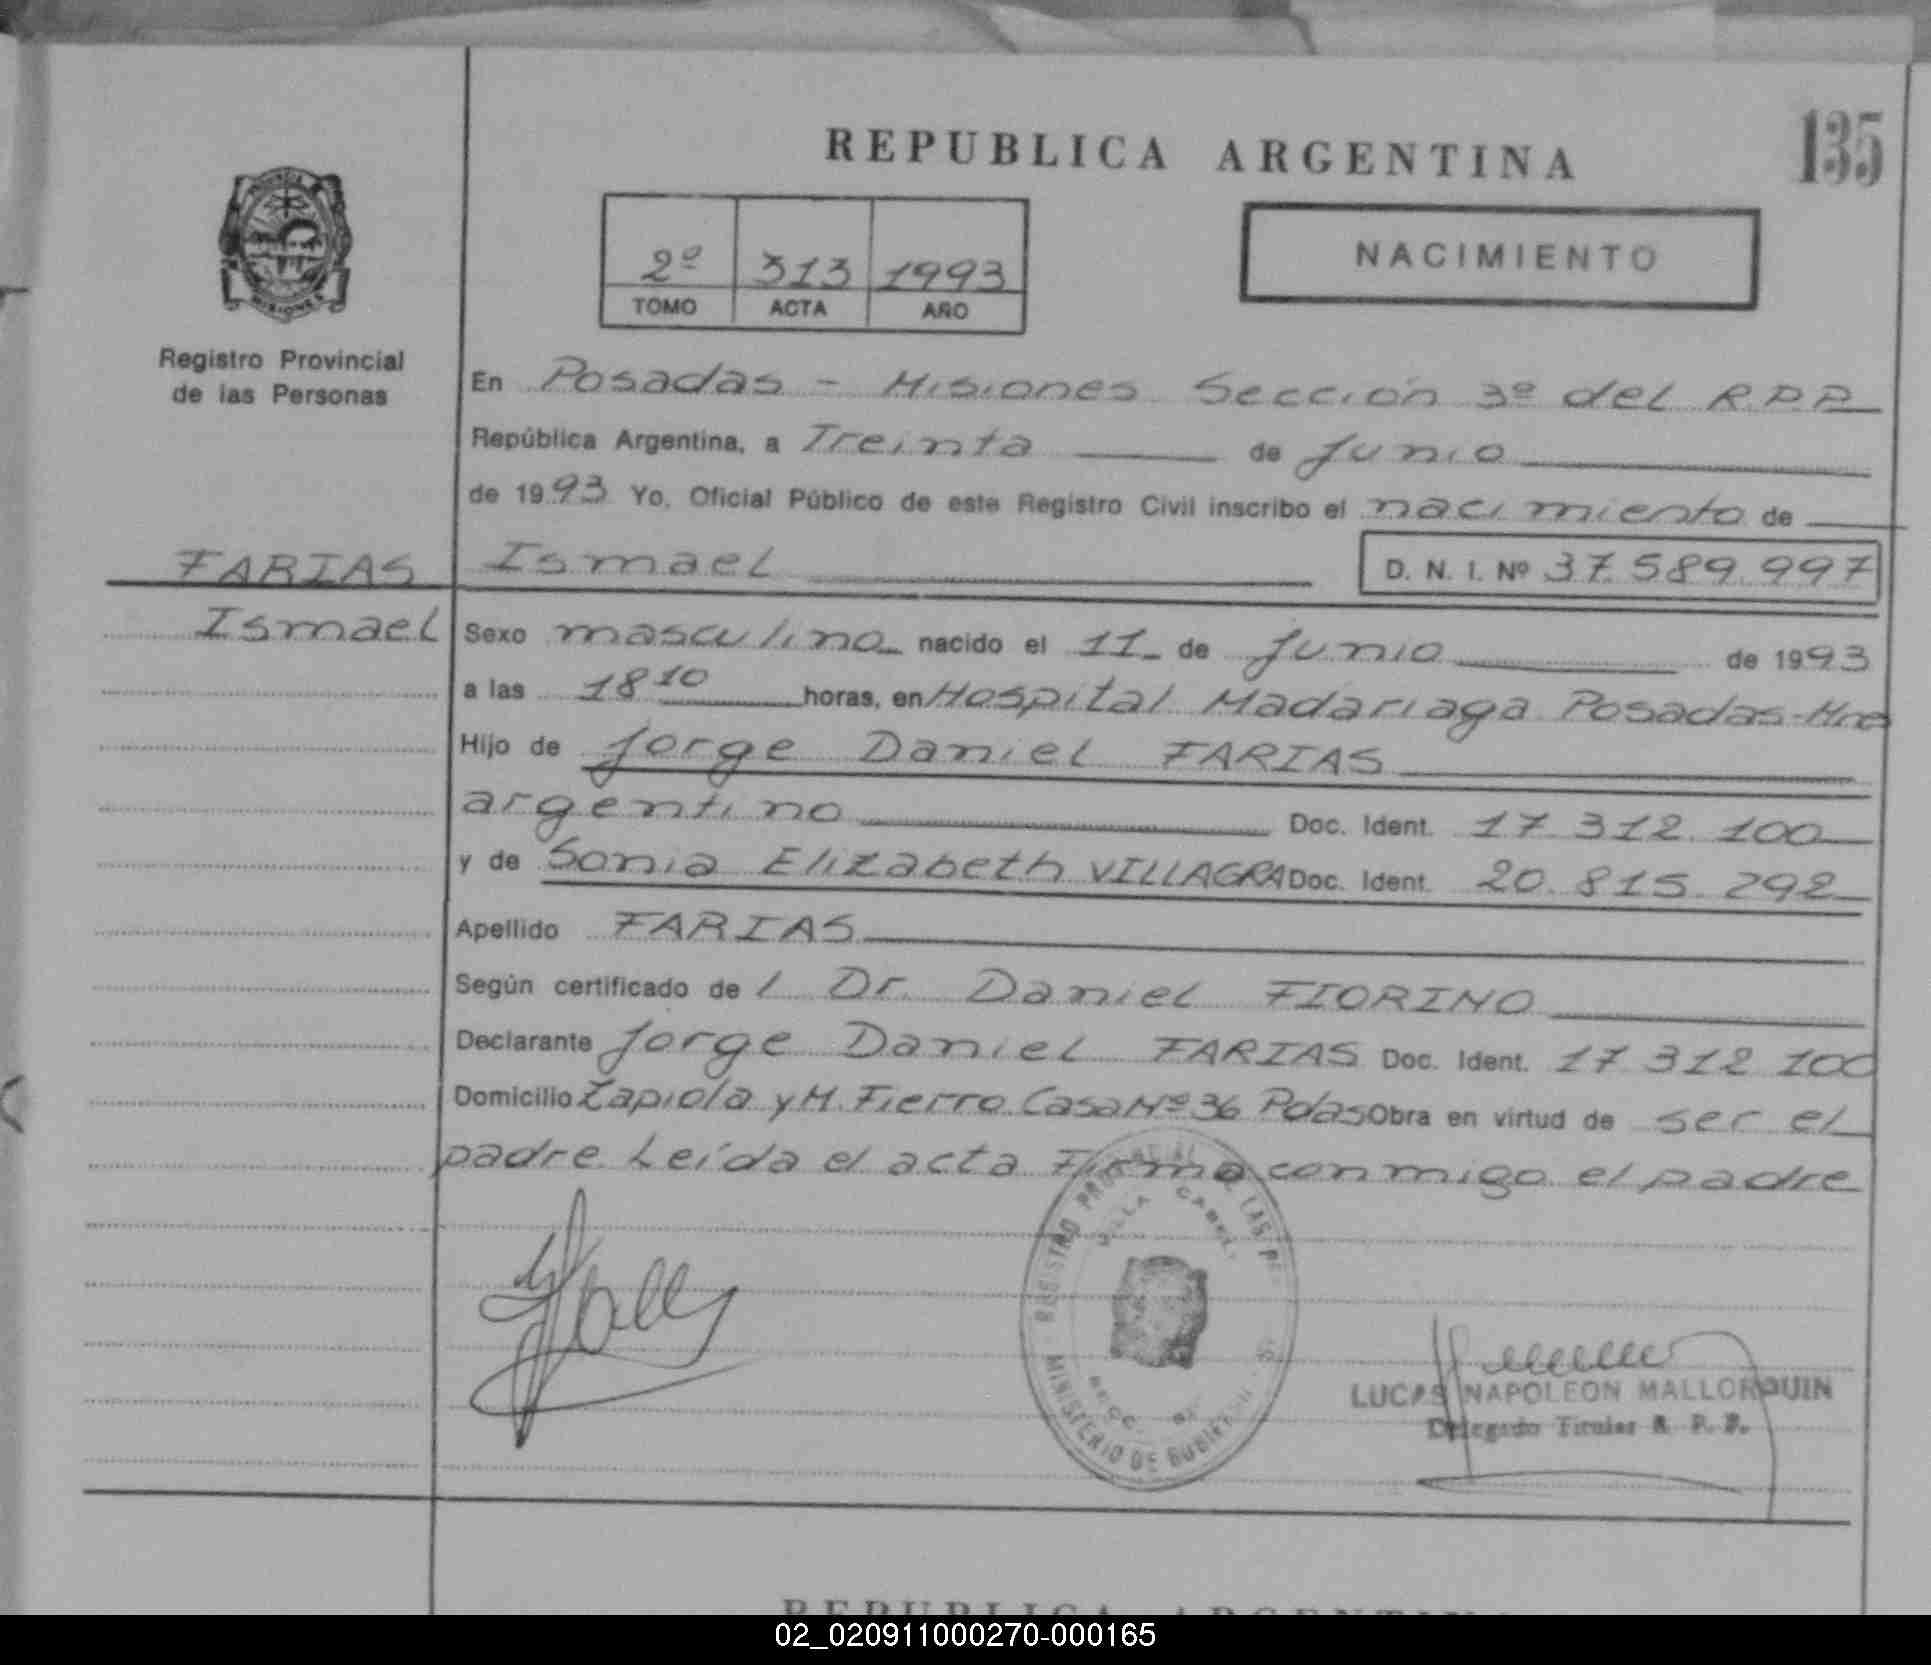 135
REPUBLICA ARGENTINA
PROVINCIA
MISIONES
Registro Provincial
de las Personas
2º 313 1993
TOMO ACTA AÑO
NACIMIENTO
En Posadas - Misiones Sección 3º del R.P.P.
República Argentina, a Treinta de Junio
de 1993 Yo, Oficial Público de este Registro Civil inscribo el nacimiento de
FARIAS Ismael D. N. I. Nº 37.589.997
Ismael Sexo masculino nacido el 11 de Junio de 1993
a las 18 10 horas, en Hospital Madariaga Posadas-Mnes
Hijo de Jorge Daniel FARIAS
argentino Doc. Ident. 17.312.100
y de Sonia Elizabeth VILLAGRA Doc. Ident. 20.815.292
Apellido FARIAS
Según certificado de l Dr. Daniel FIORINO
Declarante Jorge Daniel FARIAS Doc. Ident. 17 312 100
Domicilio Zapiola y M. Fierro Casa Nº 36 Pdas Obra en virtud de ser el
padre. Leída el acta Firma conmigo el padre
REGISTRO PROVINCIAL DE LAS
VILLA
MINISTERIO DE GOBIERNO
LUCAS NAPOLEON MALLORQUIN
Delegado Titular R. P. P.
REPUBLICA ARGENTINA
02_020911000270-000165